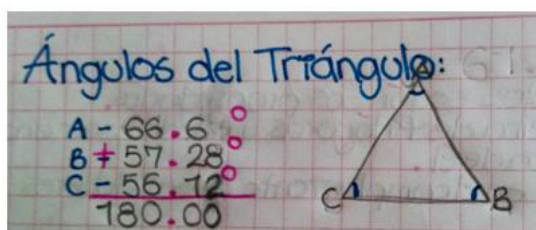 Ángulos del Triángulo:
A - 66.6°
B + 57.28°
C - 56.12°
180.00
A
C B